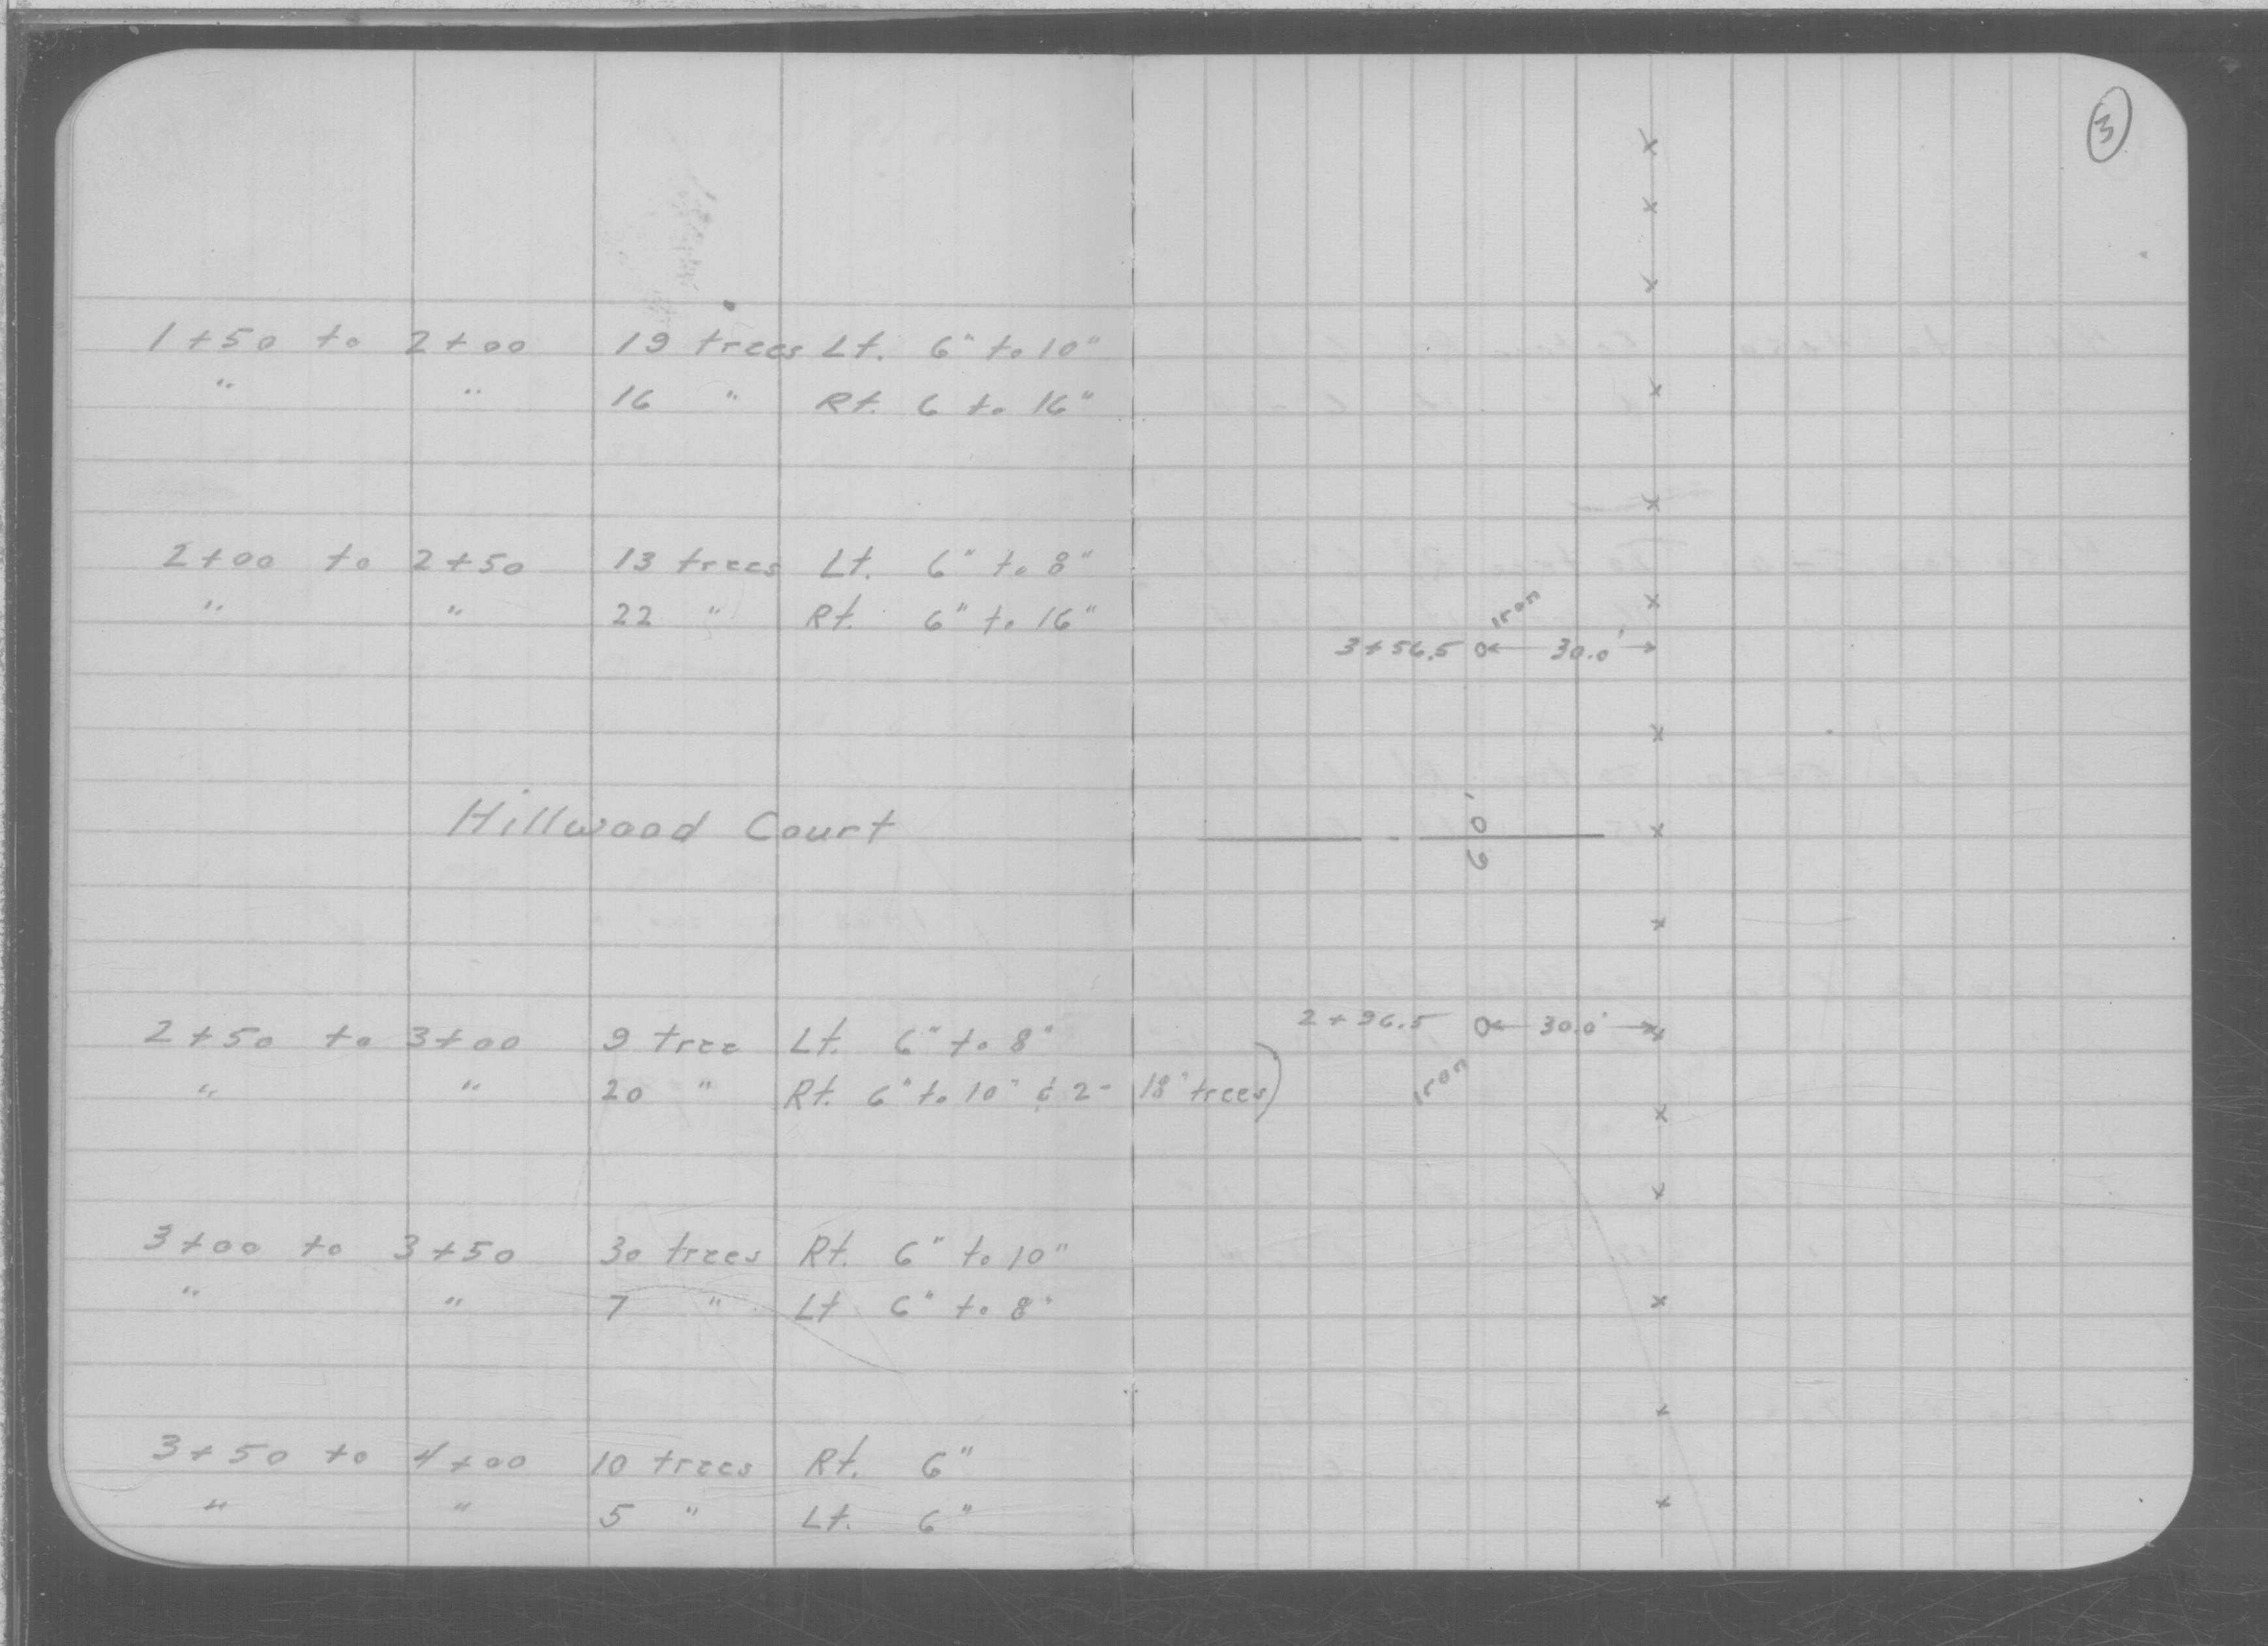 3
1+50 to 2+00 19 trees Lt. 6" to 10"
" " 16 " Rt. 6 to 16"
2+00 to 2+50 13 trees Lt. 6" to 8"
" " 22 " Rt. 6" to 16"
Iron
3+56.5 30.0'
Hillwood Court 60'
2+50 to 3+00 9 tree Lt. 6" to 8"
2+96.5 30.0'
Iron
" " 20 " Rt. 6" to 10" & 2- 18" trees)
3+00 to 3+50 30 trees Rt. 6" to 10"
" " 7 " Lt 6" to 8"
3+50 to 4+00 10 trees Rt. 6"
" " 5 " Lt. 6"